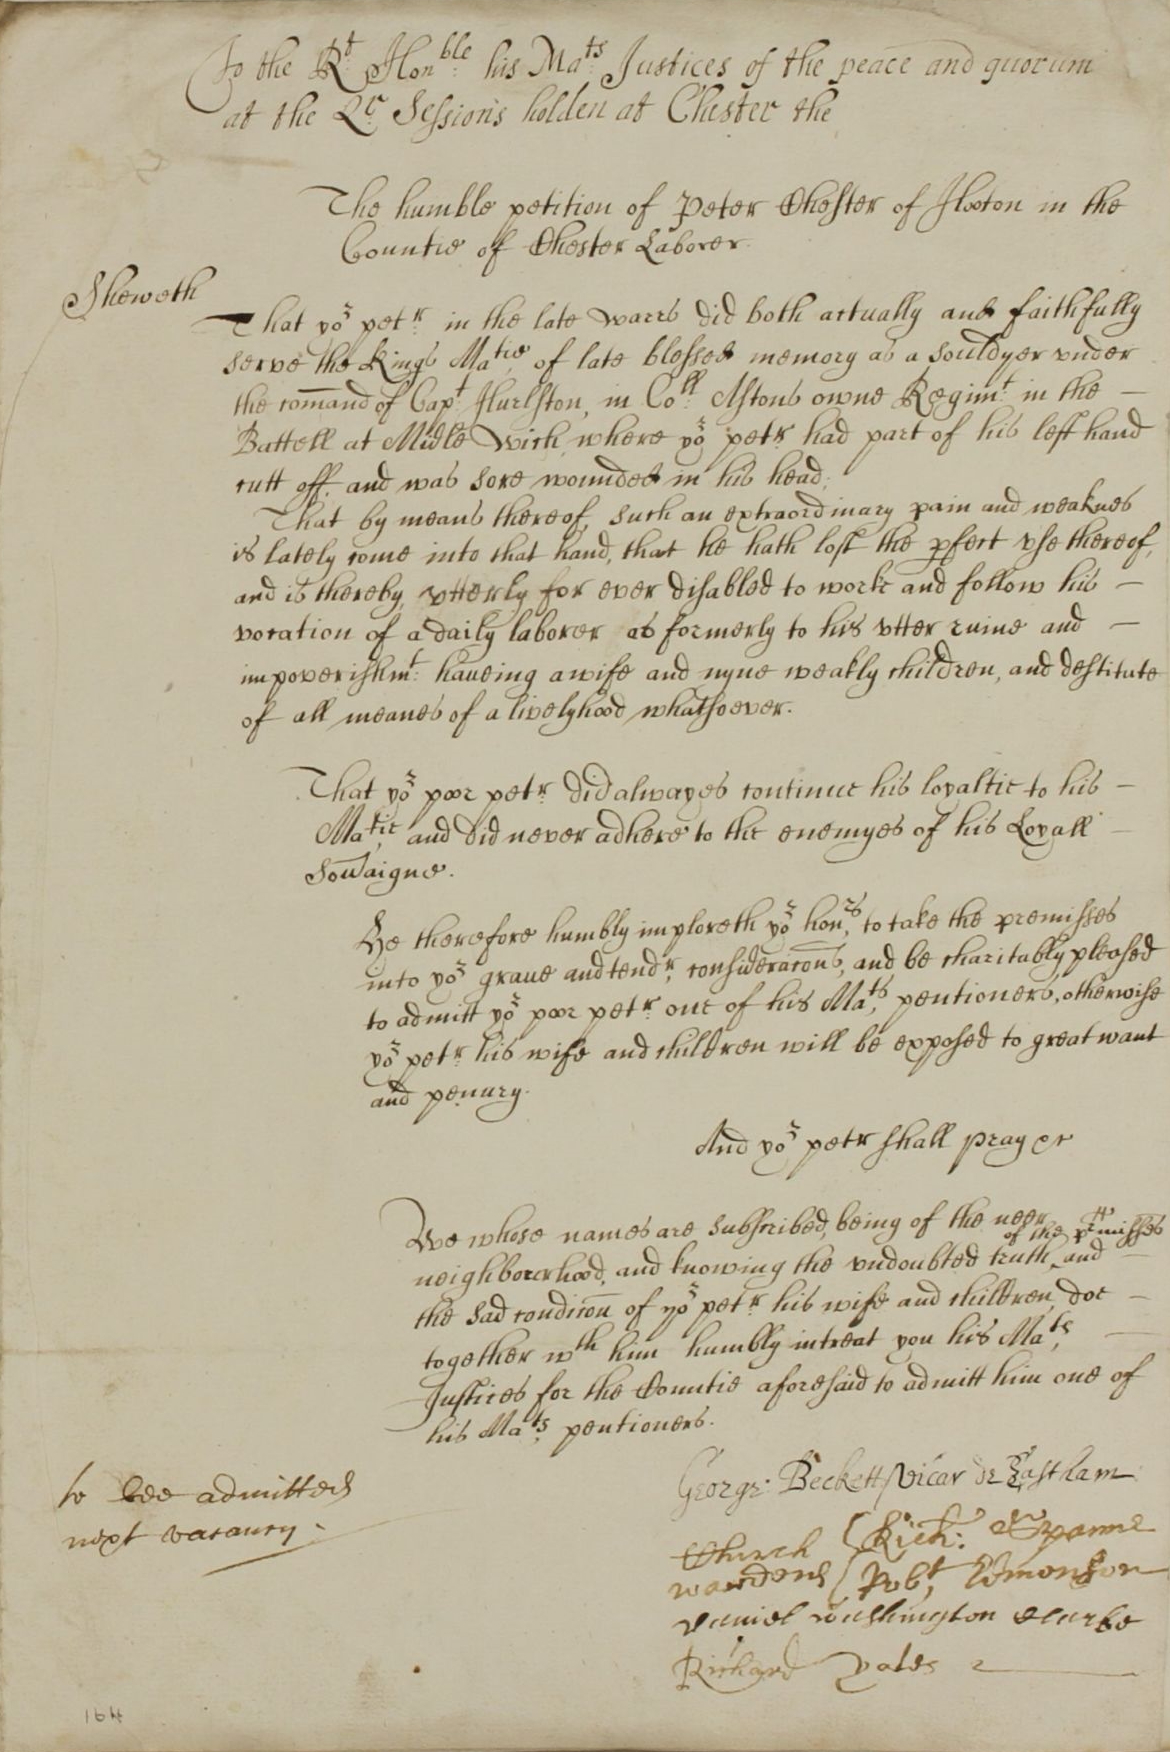 To the Rt. Honble. his Mats. Justices of the peace and quorum
at the Qr. Sessions holden at Chester the
The humble petition of Peter Chester of Hooton in the
Countie of Chester Laborer.
Sheweth
That yor petr. in the late warrs did both actually and faithfully
serve the Kings Matie. of late blessed memory as a souldyer vnder
the comand of Capt. Hurlston, in Coll. Astons owne Regimt. in the —
Battell at Midle Wich, where yor petr. had part of his left hand
cutt off, and was sore wounded in his head;
That by means thereof, such an extraordinary pain and weaknes
is lately come into that hand, that he hath lost the pfect vse thereof,
and is thereby, vtterly for ever disabled to worke and follow his —
vocation of a daily laborer as formerly to his vtter ruine and —
impoverishmt. haueing a wife and nyne weakly children, and destitute
of all meanes of a livelyhood whatsoever.
That yor poor petr. did alwayes continue his loyaltie to his —
Matie, and did never adhere to the enemyes of his Loyall —
Sovraigne.
He therefore humbly imploreth yor honrs, to take the premisses
into yor graue and tendr. consideracons, and be charitably pleased
to admitt yor poor petr. one of his Mats, pentioners, otherwise
yor petr. his wife and children will be exposed to great want
and penury.
And yor petr shall pray &c
We whose names are subscribed, being of the neer
of the pr'misses
neighborhood, and knowing the vndoubted truth ^ and —
the sad condicon of yor petr. his wife and children, doe —
together wth him humbly intreat you his Mats, —
Justices for the Countie aforesaid to admitt him one of
his Mats, pentioners.
George: Beckett Vicar de Eastham
Church { Rich:
wardens { Robt, Edmonson
Daniel Washington Clarke
Richard Yates
to bee admitted
next vacancy.
164